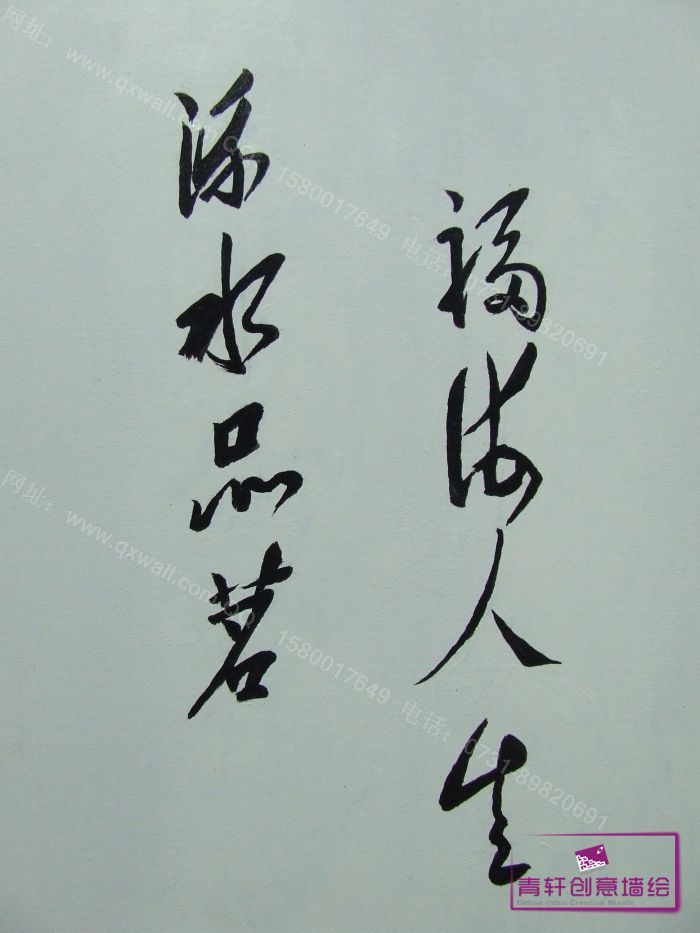 福海人生
添水品茗
网址：www.qxwall.com
1580017649 电话：0731-89820691
网址：www.qxwall.com
1580017649 电话：0731-89820691
青轩创意墙绘
Deluxe cabin Creative Murals